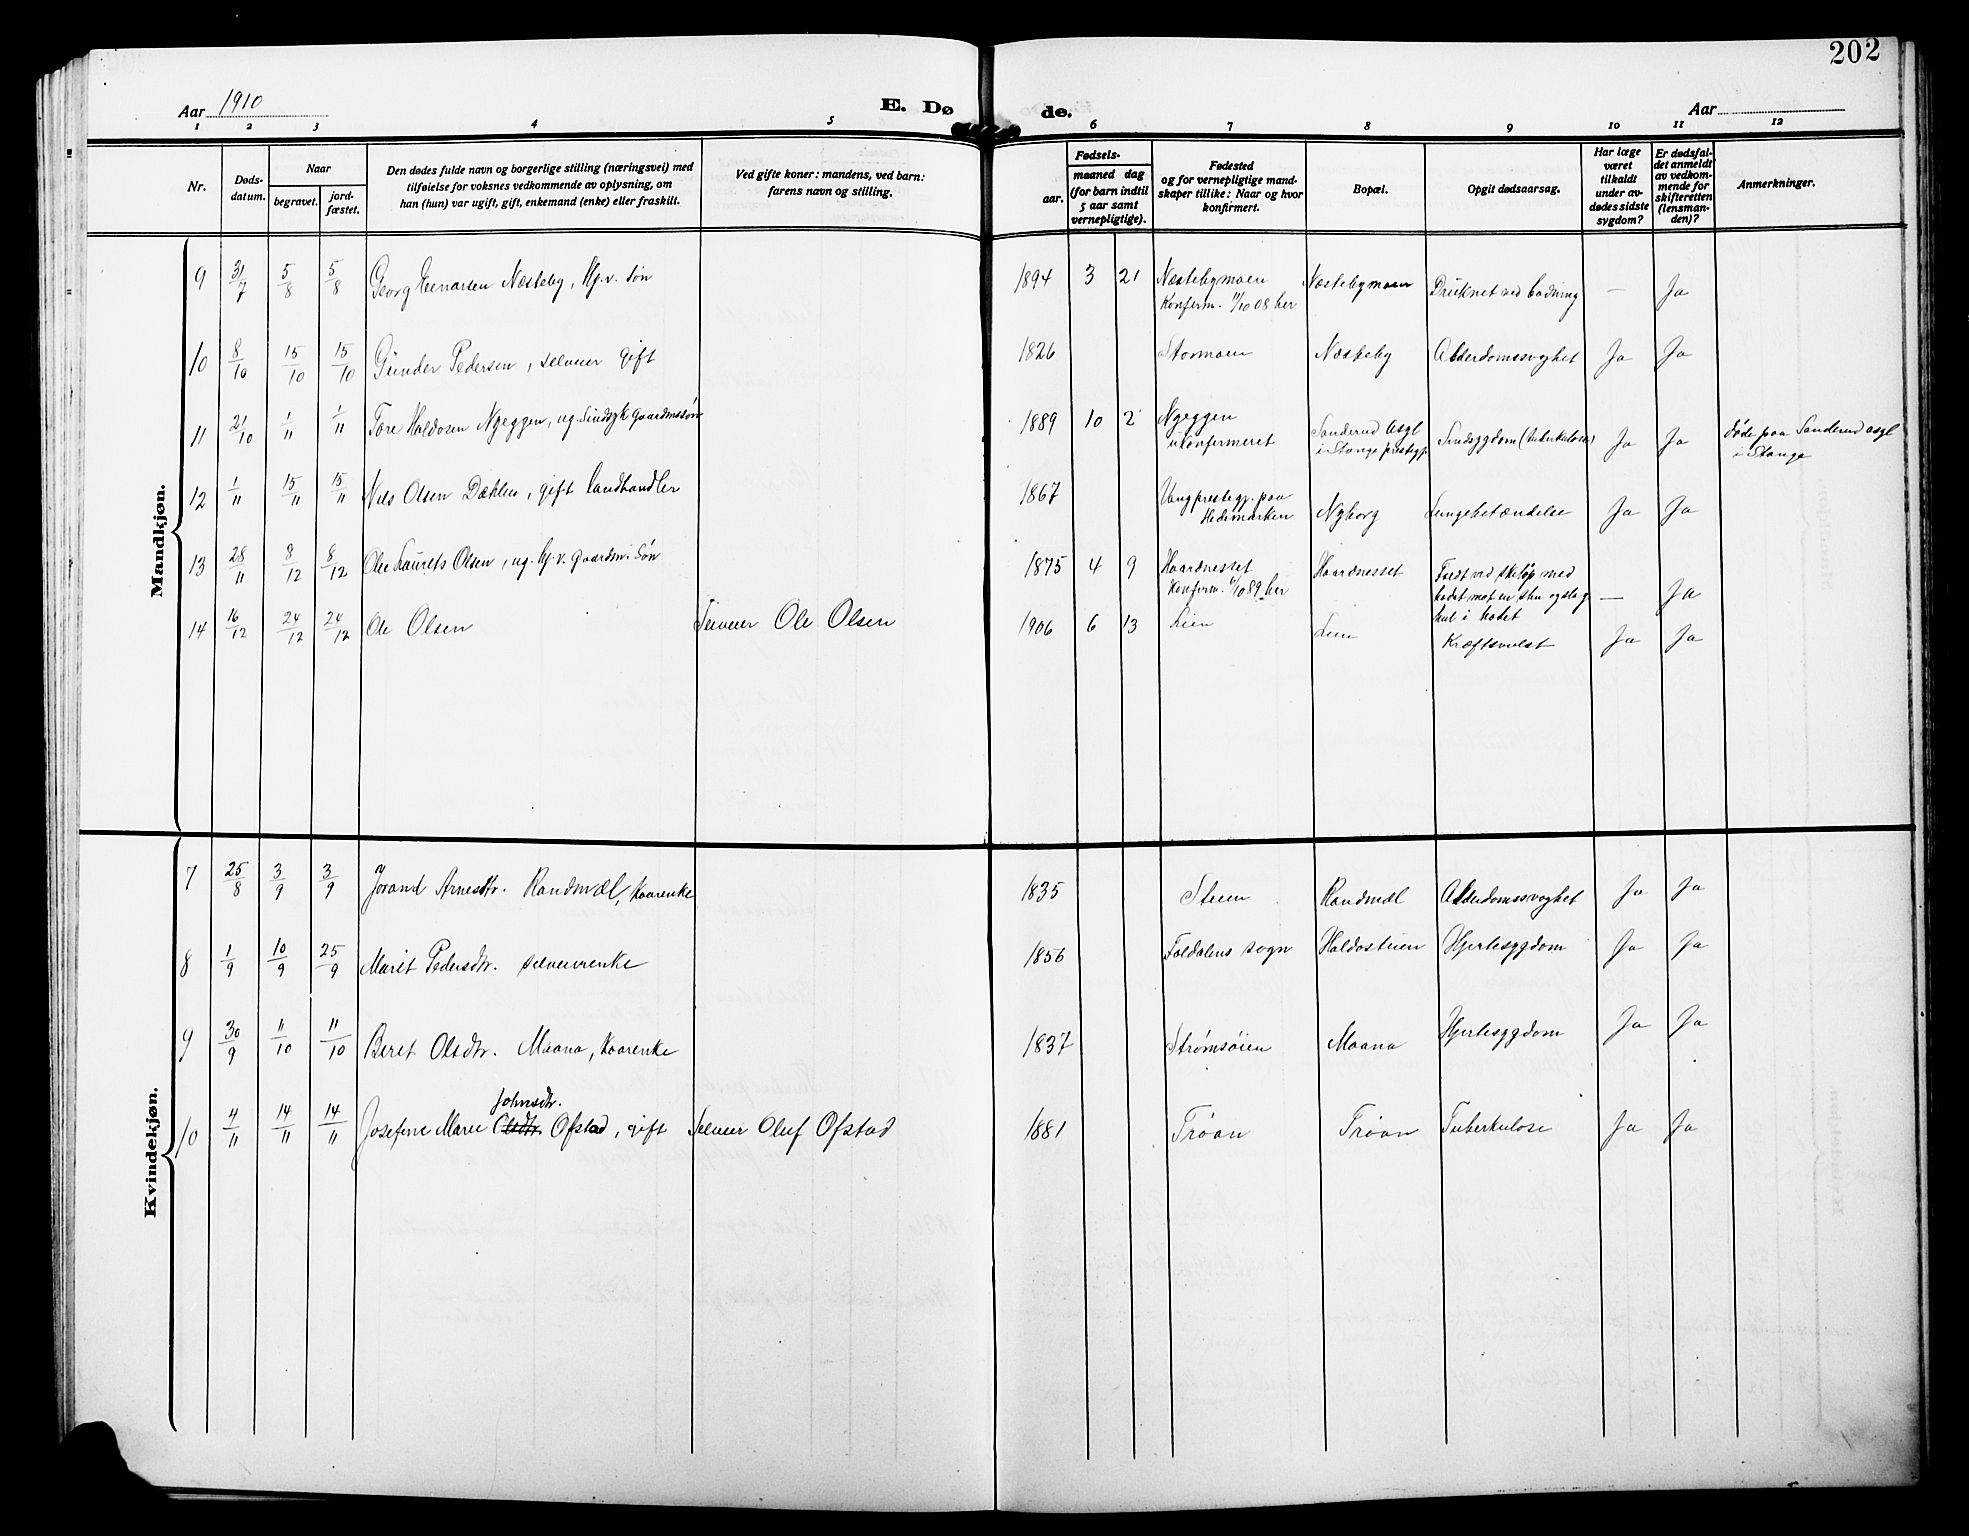 202
Aar 1910
E. Dø de.
Aar
1 2 3 4 5 6 7 8 9 10 11 12
Nr.
Døds-
datum.
Naar
begravet.
jord-
fæstet.
Den dødes fulde navn og borgerlige stilling (næringsvei) med
tilføielse for voksnes vedkommende av oplysning, om
han (hun) var ugift, gift, enkemand (enke) eller fraskilt.
Ved gifte koner: mandens, ved barn:
farens navn og stilling.
Fødsels-
aar.
maaned dag
(for barn indtil
5 aar samt
vernepligtige).
Fødested
og for vernepligtige mand-
skaper tillike: Naar og hvor
konfirmert.
Bopæl.
Opgit dødsaarsag.
Har læge
været
tilkaldt
under av-
dødes sidste
sygdom?
Er dødsfal-
det anmeldt
av vedkom-
mende for
skifteretten
(lensman-
den)?
Anmerkninger.
Mandkjøn.
9 31/7 5/8 5/8 Georg Einarsen Næsteby, Hj.v. søn 1894 3 21 Næstebymoen Næstebymoen Druknet ved badning — Ja
Konferm. 11/10 08 her
10 8/10 15/10 15/10 Gunder Pedersen, selveier gift 1826 Stormoen Næsteby Alderdomssvaghet Ja Ja
11 21/10 1/11 1/11 Tore Haldosen Nyeggen, ug. Sindsyk gaardmssøn 1889 10 2 Nyeggen Sanderud Asyl Sindsygdom (tuberkulose) Ja Ja døde paa Sanderud asyl
ukonfermeret i Stange prestegj. i Stange
12 1/11 15/11 15/11 Nils Olsen Dæhlen, gift landhandler 1867 Vang prestegj. paa Nyborg Lungebetændelse Ja Ja
Hedemarken
13 28/11 8/12 8/12 Ole Laurets Olsen, ug. Hj.v. gaardm. søn 1875 4 9 Haardnesset Haardnesset Fæst ved skiløp med
Konferm. 6/10 89 her hodet mot en sten og slog — Ja
hul i hodet
14 16/12 24/12 24/12 Ole Olsen Selveier Ole Olsen 1906 6 13 Lien Lien Kræftsvulst Ja Ja
Kvindekjøn.
7 25/8 3/9 3/9 Jorand Arnesdtr. Randmæl, kaarenke 1835 Steien Randmæl Alderdomssvaghet Ja Ja
8 1/9 10/9 25/9 Marit Pedersdtr. selveierenke 1856 Foldalens sogn Haldosteien Hjertesygdom Ja Ja
9 30/9 11/10 11/10 Beret Olsdtr. Maana, kaarenke 1837 Strømsøien Maana Hjertesygdom Ja Ja
Johnsdtr.
10 4/11 14/11 14/11 Josefine Marie Olsdtr. Ofstad, gift Selveier Oluf Ofstad 1881 Trøan Trøan Tuberkulose Ja Ja